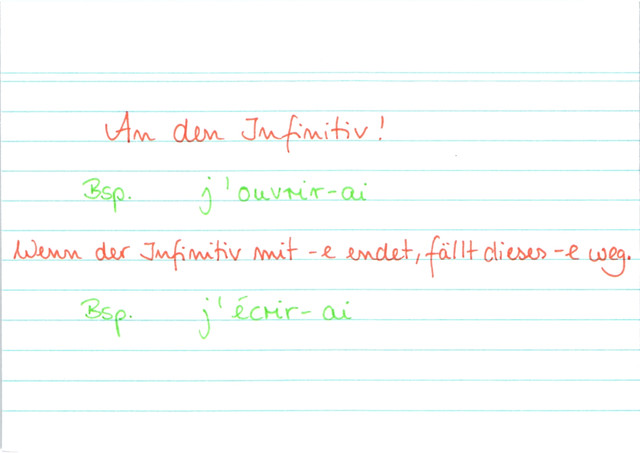 An den Infinitiv!
Bsp. j'ouvrir-ai
Wenn der Infinitiv mit -e endet, fällt dieses -e weg.
Bsp. j'écrir-ai